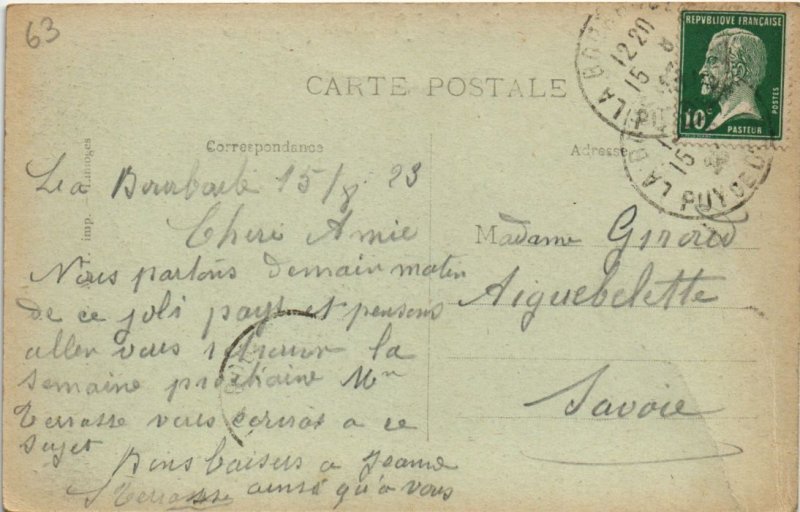 63
CARTE POSTALE
REPUBLIQUE FRANÇAISE
10c
POSTES
PASTEUR
LA BO
12 20
15
PUY DE D
Correspondance
Adresse
imp. - Limoges
La Bourboule 15/8 23
Cheri Amie
Nous partons demain maten
de ce joli pays et pensons
aller vous retrouver la
semaine prochaine Mr
Terrasse vous ecriras a ce
sujet
Bons baisers a Jeanne
Terrasse ainsi qu'a vous
Madame Giroud
Aiguebelette
Savoie